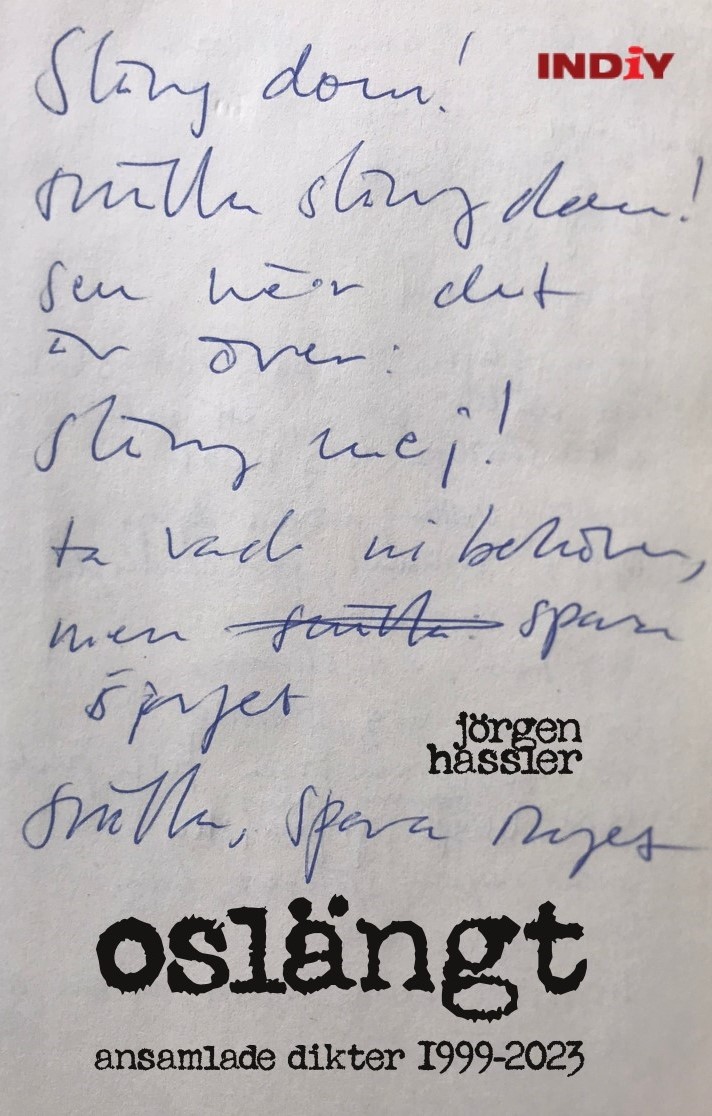 INDiY
Släng dom!
snälla släng dom!
sen när det
är över:
släng mej!
ta vad ni behöver,
men snälla: spara
jörgen
hassler
snälla, spara
oslängt
ansamlade dikter 1999-2023